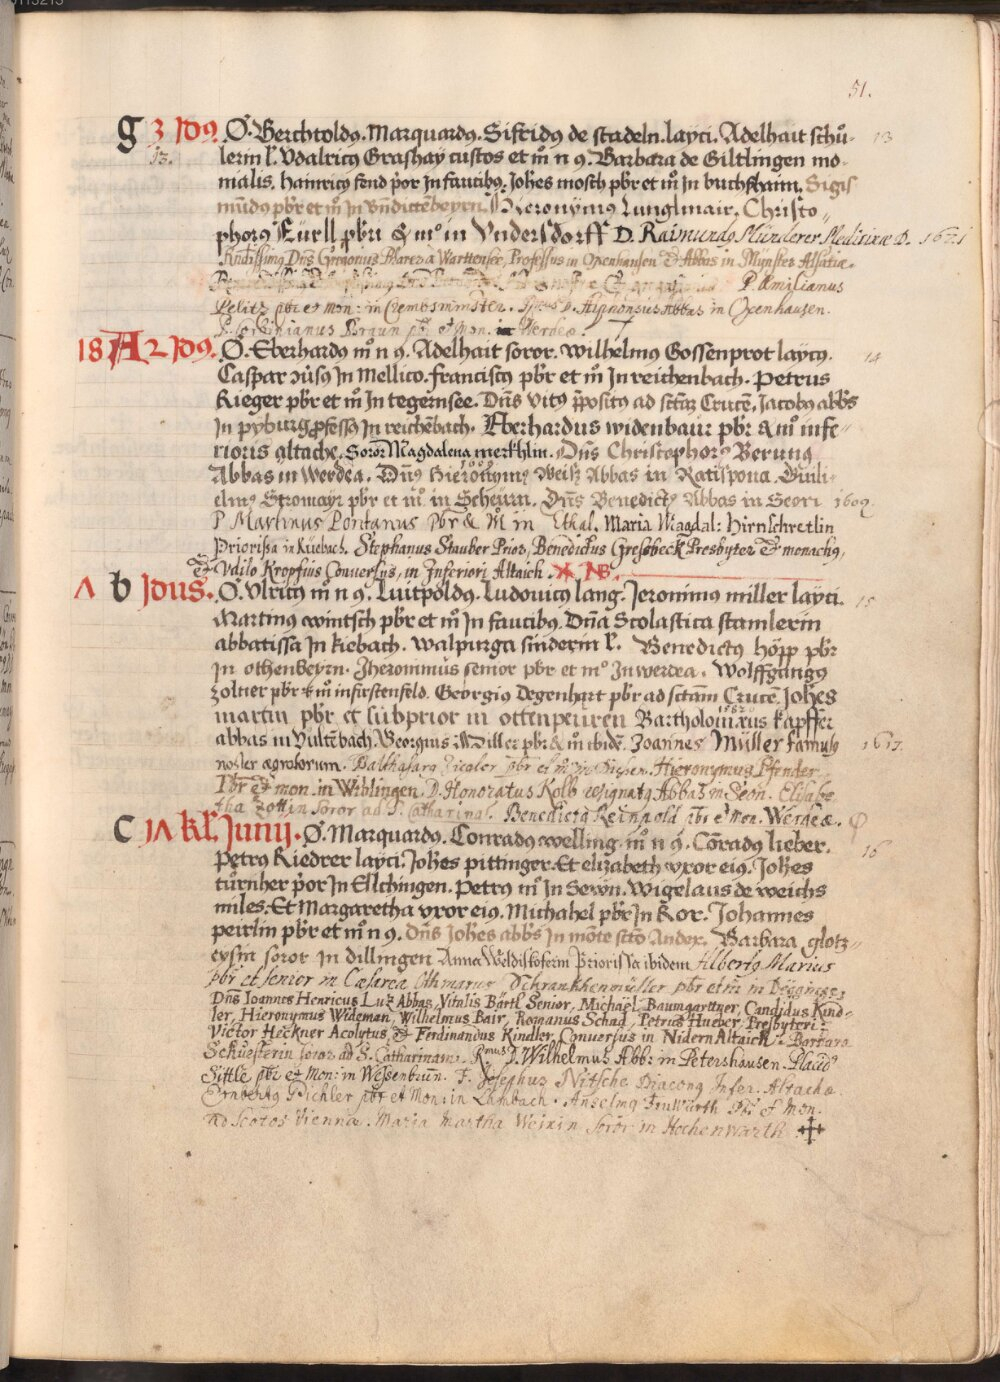 51.
g 3 Idꝯ. O. Berchtoldꝯ. Marquardꝯ. Sifridꝯ de stadeln. layci. Adelhait schů- 13
13. lerin l'. Vdalricꝯ Grashay custos et m̊ n ꝯ. Barbara de Giltlingen mo-
nialis. Hainricꝯ fend p̄or In faucibꝯ. Joh̄es mosch pbr̄ et m̊ In buchshaim. Sigis
mūdꝯ pbr̄ et m̊ In Bn̄dictēbeyrn. Hieronymꝯ Lunglmair, Christo-
phorꝯ Fürll pbr̄i & mº in Vndersdorff D. Raimundꝯ Münderer Medicinæ D. 1621
Gregorius a Warttensee, Professus in Oxenhausen & Abbas in Münster Alsatiæ.
P. Æmilianus
Pelitz pbr et mon: in Crembsminster. D. Alphonsus Abbas in Oxenhausen.
P. Corbinianus Braun pbr et mon. in Werdea.
18 A 2 Idꝯ. O. Eberhardꝯ m̊ n ꝯ. Adelhait soror. Wilhelmꝯ Gossenprot laycꝯ. 14
Caspar In Mellico. franciscꝯ pbr̄ et m̊ In reichenbach. Petrus
Rieger pbr̄ et m̊ In tegernsee. Dn̄s Vitꝯ p̄positꝯ ad sctāz Crucē. Jacobꝯ abb̄s
In pyburg pfessꝯ In reichēbach. Eberhardus widenbaur pbr̄ & mº infe-
rioris altache. Soror Magdalena merkhlin. Dn̄s Christophorꝯ Gerung
Abbas in Werdea. Dn̄s Hieronymꝯ Weiß Abbas in Ratispona. Guili-
elmꝯ Stromayr pbr̄ et mº in Scheurn. Dn̄s Benedictꝯ Abbas in Seon 1609
P Martinus Pontanus pbr & M in Ethal. Maria Magdal: Hirnschretlin
Priorissa in Küebach. Stephanus Stauber Prior, Benedictus Gresbeck Presbyter & monachꝯ,
& Vdilo Kropfius Conversꝯ, in Inferiori Altaich. NB.
Λ b Idus. O. Vlricꝯ m̊ n ꝯ. Luitpoldꝯ. Ludovicꝯ lang. Jeronimus miller layci. 15
Martinꝯ wintsch pbr̄ et m̊ In faucibꝯ. Dn̄a Scolastica stamlerin
abbatissa In kiebach. Walpurga sinderin l'. Benedictꝯ höpp pbr̄
In othenbeyrn. Jheronimus senior pbr̄ et mº In werdea. Wolffgangꝯ
zolner pbr̄ et m̊ in firstenfeld. Georgiꝯ Degenhart pbr̄ ad sctam Crucē Joh̄es
martin pbr̄ et subprior in ottenpeuren Bartholomæus kapffer
abbas in Vultēbach. Georgius Miller pbr̄ & m̊ ibidē. Joannes Müller famulꝯ 1617.
noster ægrotorum. Balthasarꝯ Ziegler pbr et mº in Diessen. Hieronymus Pfender
Pbr & mon. in Wiblingen. D. Honoratus Kolb resignatꝯ Abbas in Seon. Elisabe
tha Zottin soror ad S. Catharinā. Benedictꝯ Reinpold pbr et mon. Werdeæ.
C 17 kł. Junij. O. Marquardꝯ. Conradꝯ welling. m̊ n ꝯ. Cōradꝯ lieber. 16
Petrꝯ Riedrer layci. Joh̄es pittinger. Et elizabeth vxor eiꝯ. Joh̄es
tůrnher p̄or In Ellchingen. Petrꝯ mº In Sewn. Wigelaus de weichs
miles. Et Margaretha vxor eiꝯ. Michahel pbr̄ In Kor. Johannes
peirlin pbr̄ et m̊ n ꝯ. Dn̄s Joh̄es abb̄s In mōte sctō Andex. Barbara glotz-
eysin soror In dillingen Anna Weldiskoferin Priorissa ibidem Albertꝯ Marius
pbr et senior in Cæsarea Othmarus Schrankhenmüller pbr et m in
Dn̄s Ioannes Henricus Luz Abbas, Vitalis Bärtl Senior, Michaël Baumgarttner, Candidus Kind-
ler, Hieronymus Wideman, Wilhelmus Bair, Romanus Schad, Petrus Hueber, Presbyteri:
Victor Heckner Acolytus, & Ferdinandus Kindler, Conversus in NidernAltaich. Barbara
Schuesterin soror ad S. Catharinam. Rmus D. Wilhelmus Abb: in Petershausen. Placid
Sittle pbr et Mon: in Wessenbrun. F. Josephus Nitsche Diaconꝯ Infer. Altachæ.
Ernbertꝯ Pichler pbr et Mon: in Lambach. Anselmꝯ Fruwürth Pbr et Mon.
ad Scotos Viennæ. Maria Martha Weixin Soror in Hochenwarth